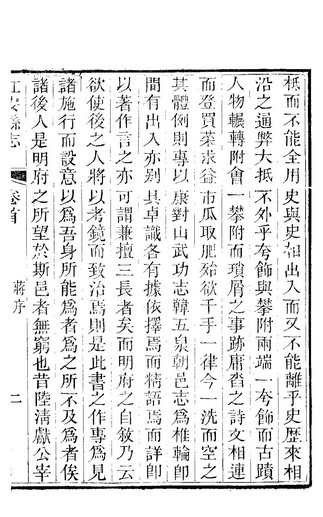 柢而不能全用史與史相出入而又不能離乎史歷來相
沿之通弊大抵不外乎夸飾與攀附兩端一夸飾而古蹟
人物輾轉附會一攀附而瑣屑之事跡庸沓之詩文相連
而登買菜求益市瓜取肥殆欲千手一律今一洗而空之
其體例則專以康對山武功志韓五泉朝邑志為椎輪即
間有出入亦別具卓識各有據依擇焉而精語焉而詳即
以著作言之亦可謂兼擅三長者矣而明府之自敘乃云
欲使後之人將以考鏡而致治焉則是此書之作專為見
諸施行而設意以為吾身所能為者為之所不及為者俟
諸後人是明府之所望於斯邑者無窮也昔陸清獻公宰
江安縣志 卷首 蔣序 二